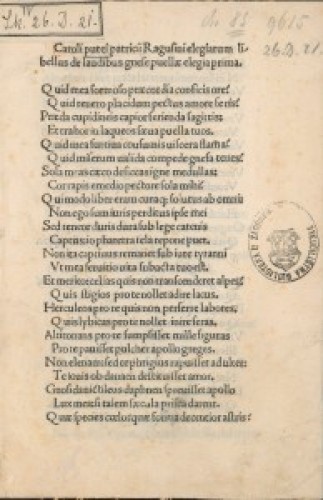 26. D. 21.
9615
26. D. 21.
Caroli putei patricii Ragusini elegiarum li-
bellus de laudibus gnese puellæ elegia prima.
Quid mea formoso præcordia conficis ore?
Quid tenero placidum pectus amore feris?
Præda cupidineis capior ferienda sagittis:
Et trahor in laqueos sæua puella tuos.
Quid mea furtiua consumis uiscera flama?
Quid miserum ualida compede gnesa
Sola meas cæco desiccas igne medullas:
Corrapis e medio pectore sola mihi?
Qui modo liber eram curaque solutus ab omni
Non ego sum iuris perditus ipse mei
Sed teneor duris dura sub lege catenis
pharetra tela repone puer.
Non ita captiuus remanet sub iure tyranni
Vt mea seruitio uita subacta tuo est.
Et merito: te quis non transcenderet alpes?
Quis stigios pro te nollet adire lacus.
Herculeos pro te quis non perferre labores,
Quis lybicas pro te nollet inire feras.
Altitonans pro te sumpsisset mille figuras
Pro te pauisset pulcher apollo greges.
Non elenam sed te phrigius rapuisset adulter:
Te iouis ob danaen destituisset amor.
Gnosida daphnen spreuisset apollo
Lux mea si talem sæcula prisca darent.
Quæ species cœlo: quæ forma decentior astris?